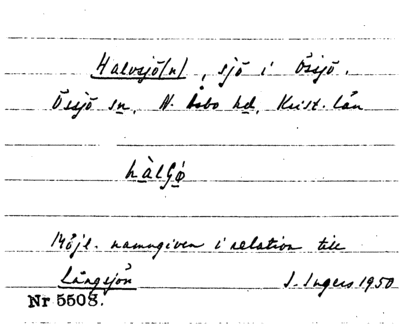 Halvsjö(n), sjö i Össjö.
Össjö sn, N. Åsbo hd, Krist. län
Möjl. namngiven i relation till
Långsjön I. Ingers 1950
Nr 5508.